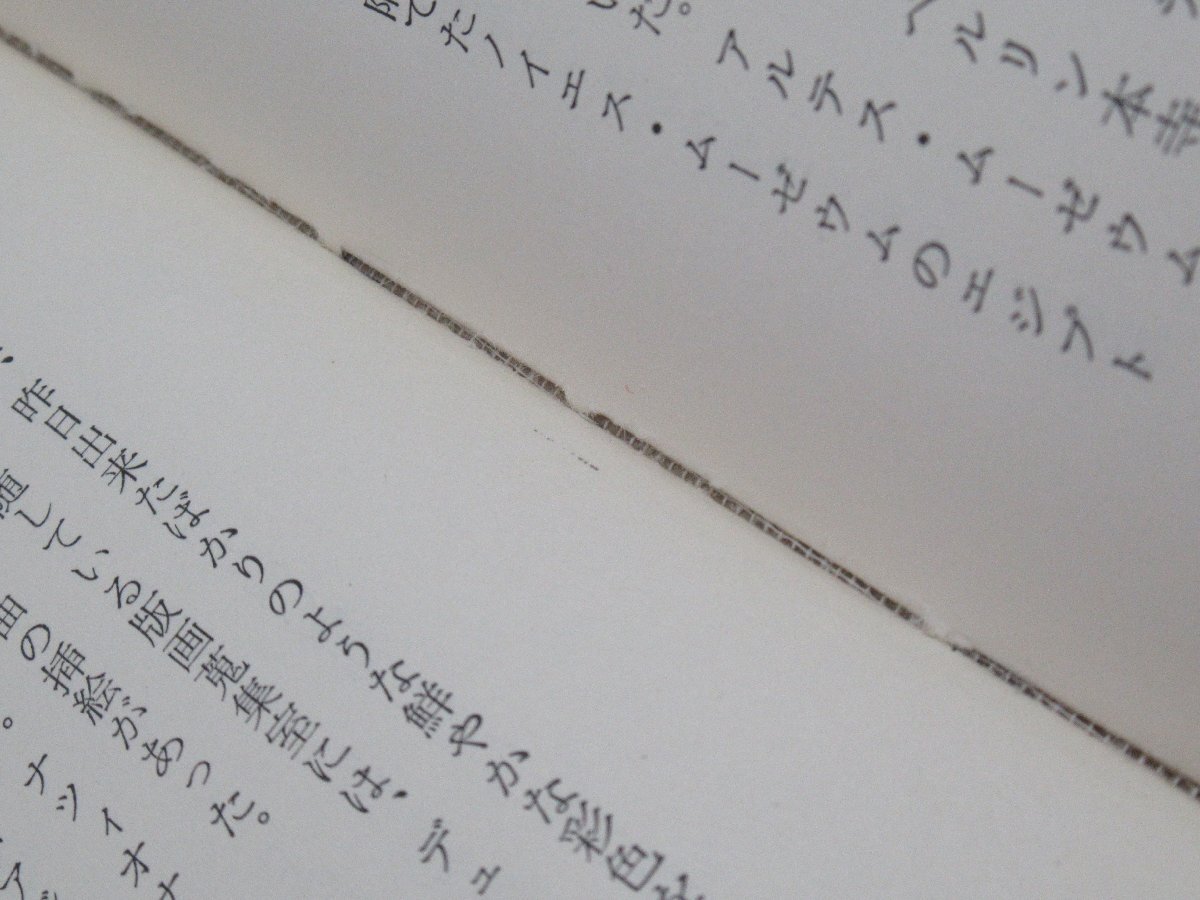 ルリン本
た。アルテス・ムーゼウム
てたノイエス・ムーゼウムのエジプト
、昨日出来たばかりのような鮮やかな彩色
随している版画蒐集室には、デュ
の挿絵があった。
。ナツィオナ